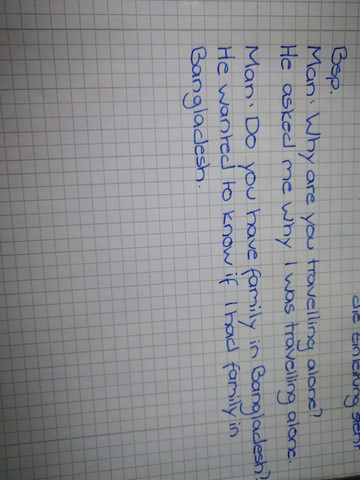 die Einleitung steht
Bsp.
Man: Why are you travelling alone?
He asked me why I was travelling alone.
Man: Do you have family in Bangladesh?
He wanted to know if I had family in
Bangladesh.